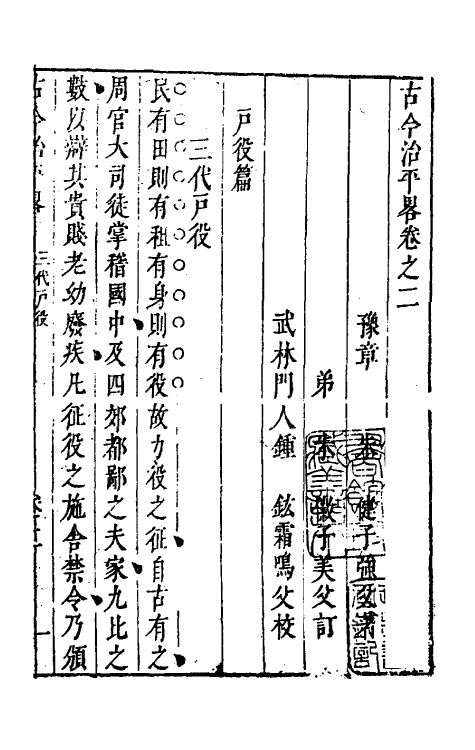 古今治平畧卷之二
豫章 朱 健子強父著
弟 朱 徽子美父訂
武林門人鍾 鋐霜鳴父校
戶役篇
三代戶役
民有田則有租有身則有役故力役之征自古有之
周官大司徒掌稽國中及四郊都鄙之夫家九比之
數以辯其貴賤老幼廢疾凡征役之施舍禁令乃頒
古今治平畧 三代戶役 卷之二 一